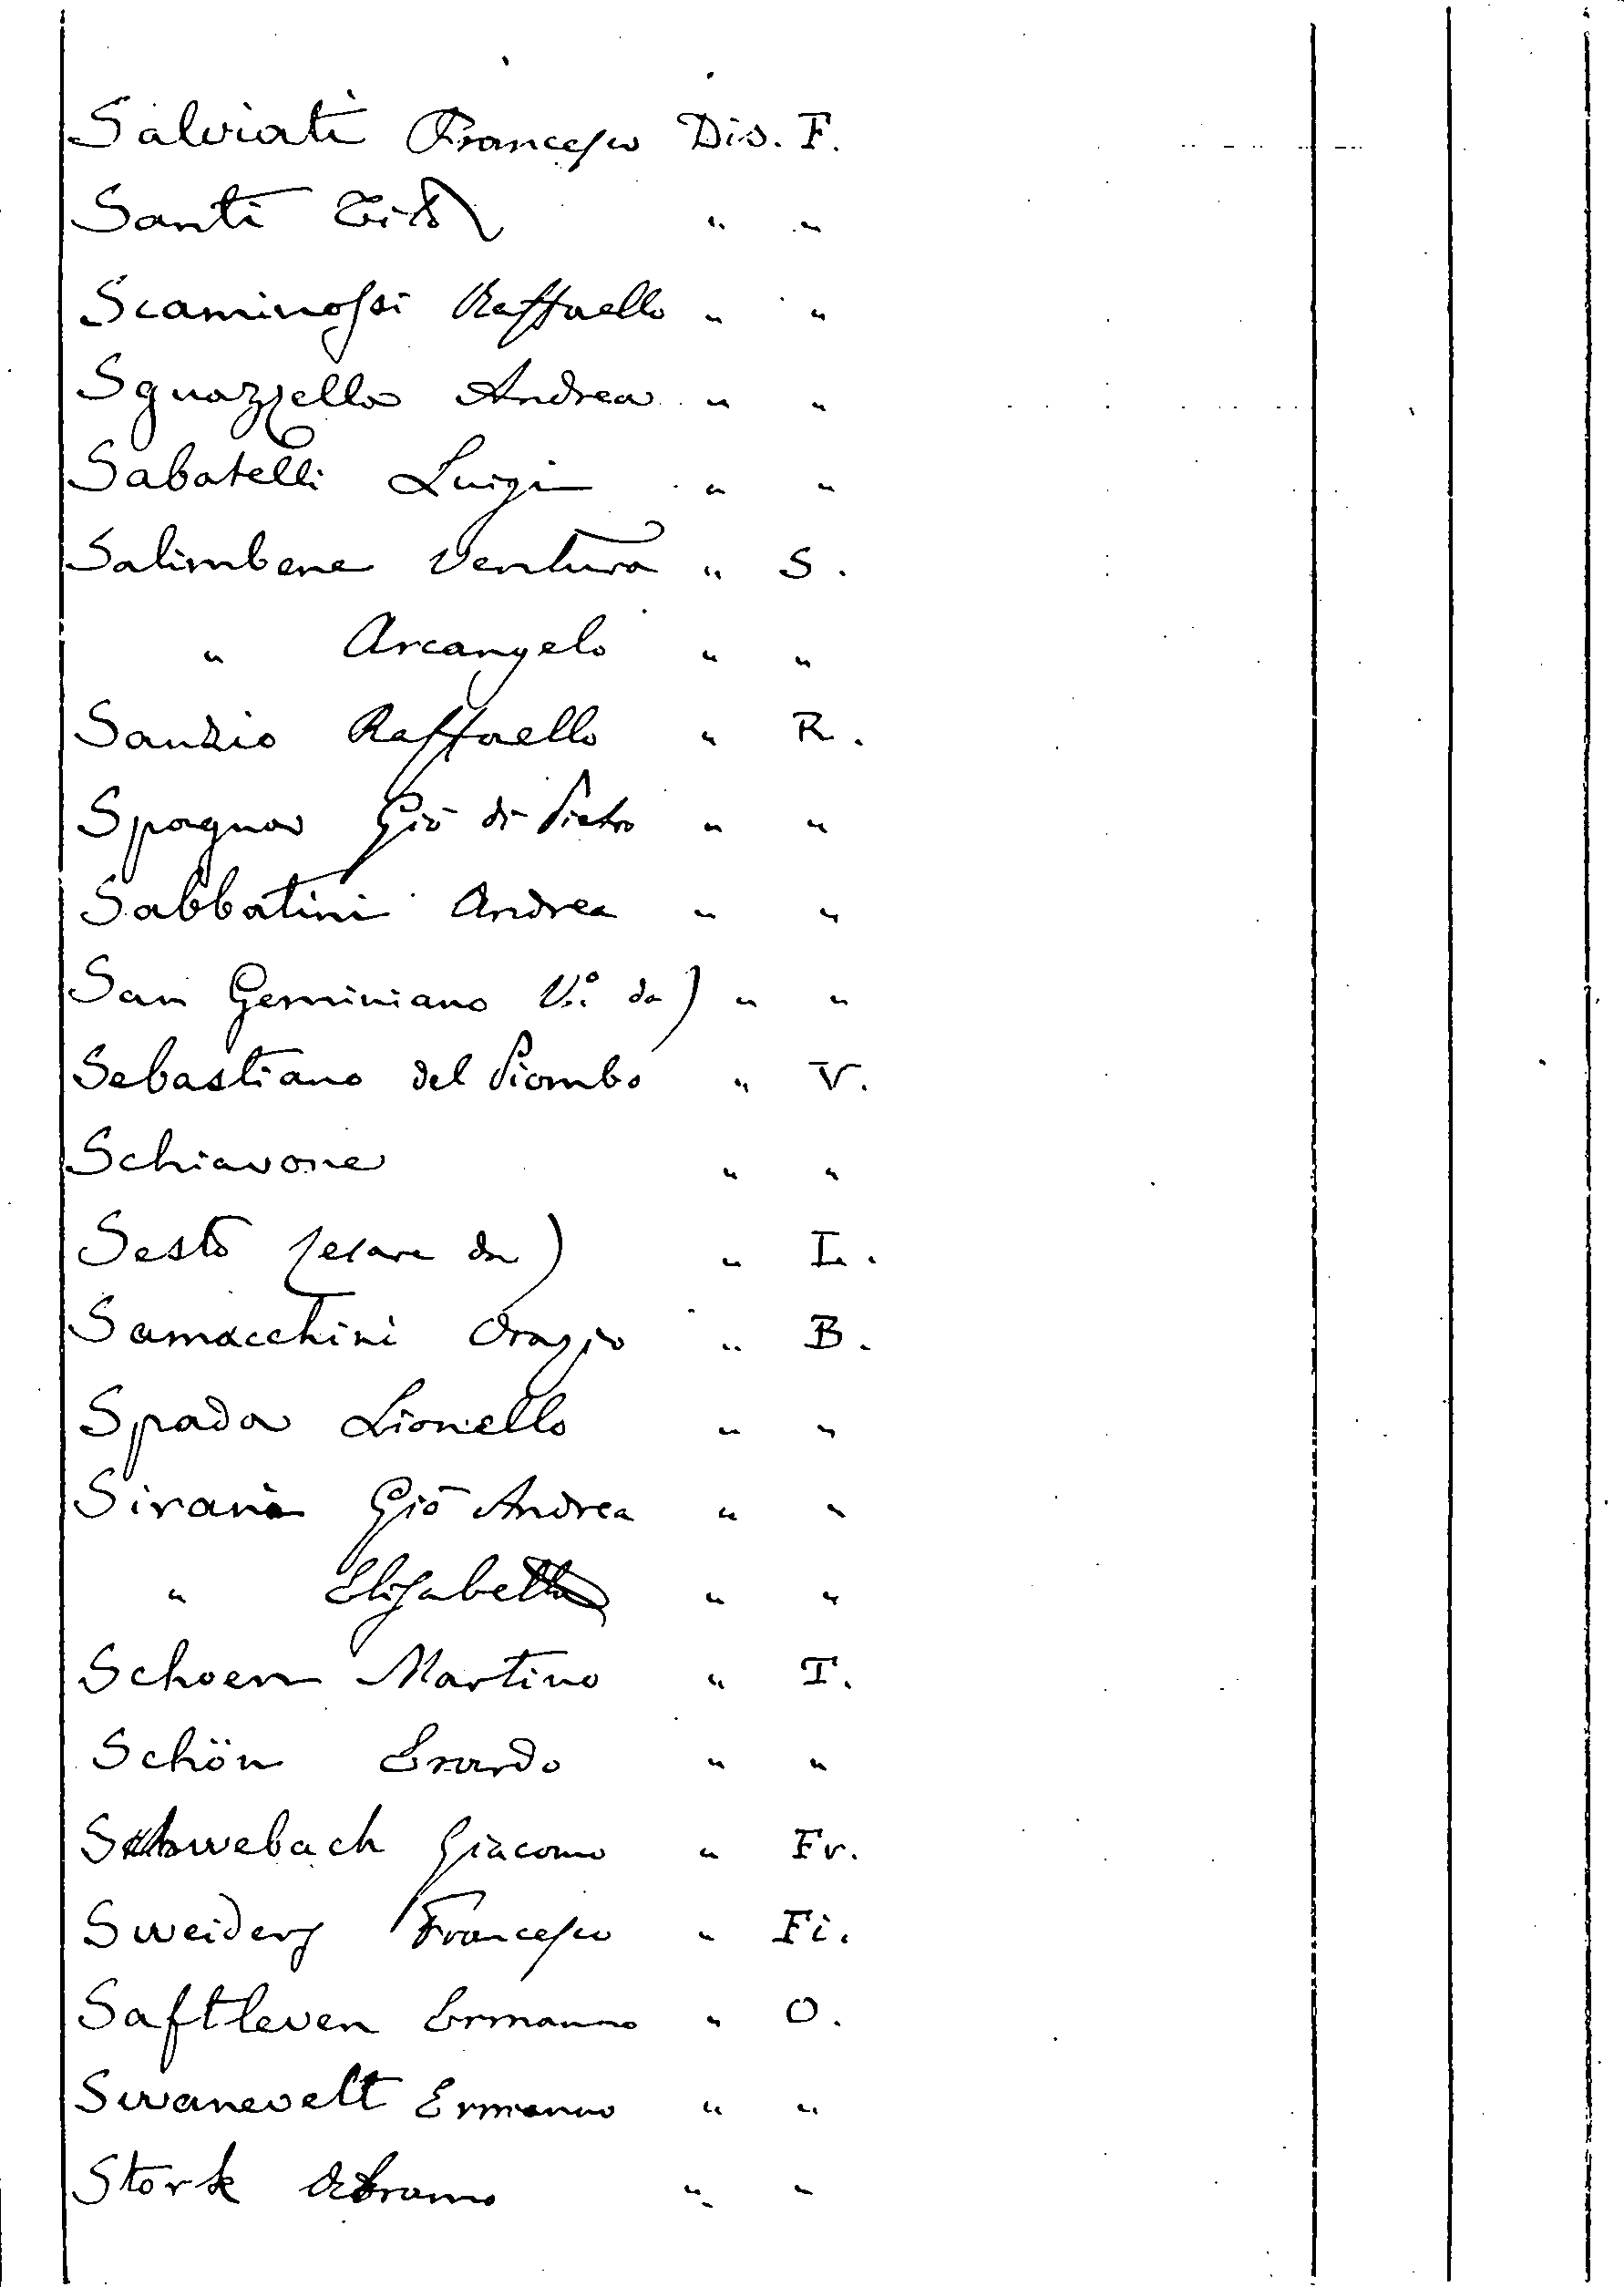 Salviati Francesco Dis. F.
Santi Tito " "
Scaminossi Raffaello " "
Sguazzella Andrea " "
Sabatelli Luigi " "
Salimbene Ventura " S.
" Arcangelo " "
Sanzio Raffaello " R.
Spagna Gio di Pietro " "
Sabbatini Andrea " "
San Geminiano V.º da) " "
Sebastiano del Piombo " V.
Schiavone " "
Sesto Cesare da) " L.
Samacchini Orazio " B.
Spada Lionello " "
Sirani Gio Andrea " "
" Elisabetta " "
Schoen Martino " T.
Schön Erardo " "
Schwebach Giacomo " Fr.
Sweiderg Francesco " Fi.
Saftleven Ermanno " O.
Swanevelt Ermanno " "
Stork Abramo " "